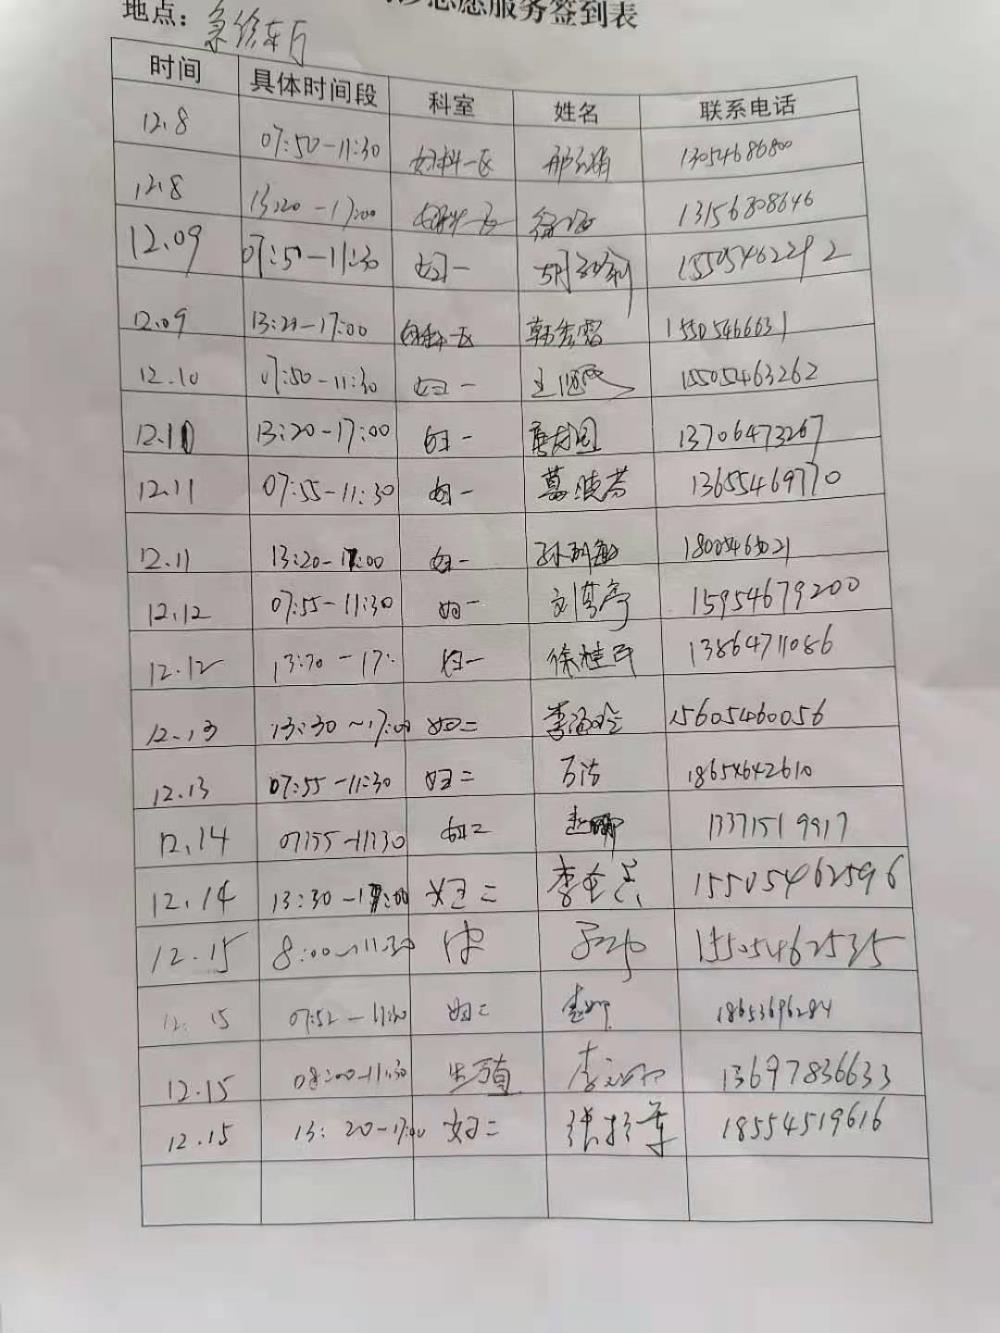 志愿服务签到表
地点：急诊东厅
时间 具体时间段 科室 姓名 联系电话
12.8 07:50-11:30 妇科一区 13054686800
12.8 13:20-17:00 妇科一区 13156808646
12.09 07:50-11:30 妇一 15505462292
12.09 13:20-17:00 妇科一区 韩秀霞 15505466631
12.10 07:50-11:30 妇一 15505463262
12.10 13:20-17:00 妇一 13706473267
12.11 07:55-11:30 妇一 葛晓芳 13655469770
12.11 13:20-17:00 妇一 孙利敏
12.12 07:55-11:30 妇一 刘梦亭 15954679200
12.12 13:20-17: 妇一 徐桂芹 13864711086
12.13 13:30~17:00 妇二 15605460056
12.13 07:55-11:30 妇二 万洁 18654642610
12.14 07:55-11:30 妇二 赵娜 13371519917
12.14 13:30-17:00 妇二 15505462596
12.15 8:00-11:30 15505462535
12.15 07:52-11:30 妇二 赵娜 18653696284
12.15 08:00-11:30 生殖 13697836633
12.15 13:20-17:00 妇二 18554519616